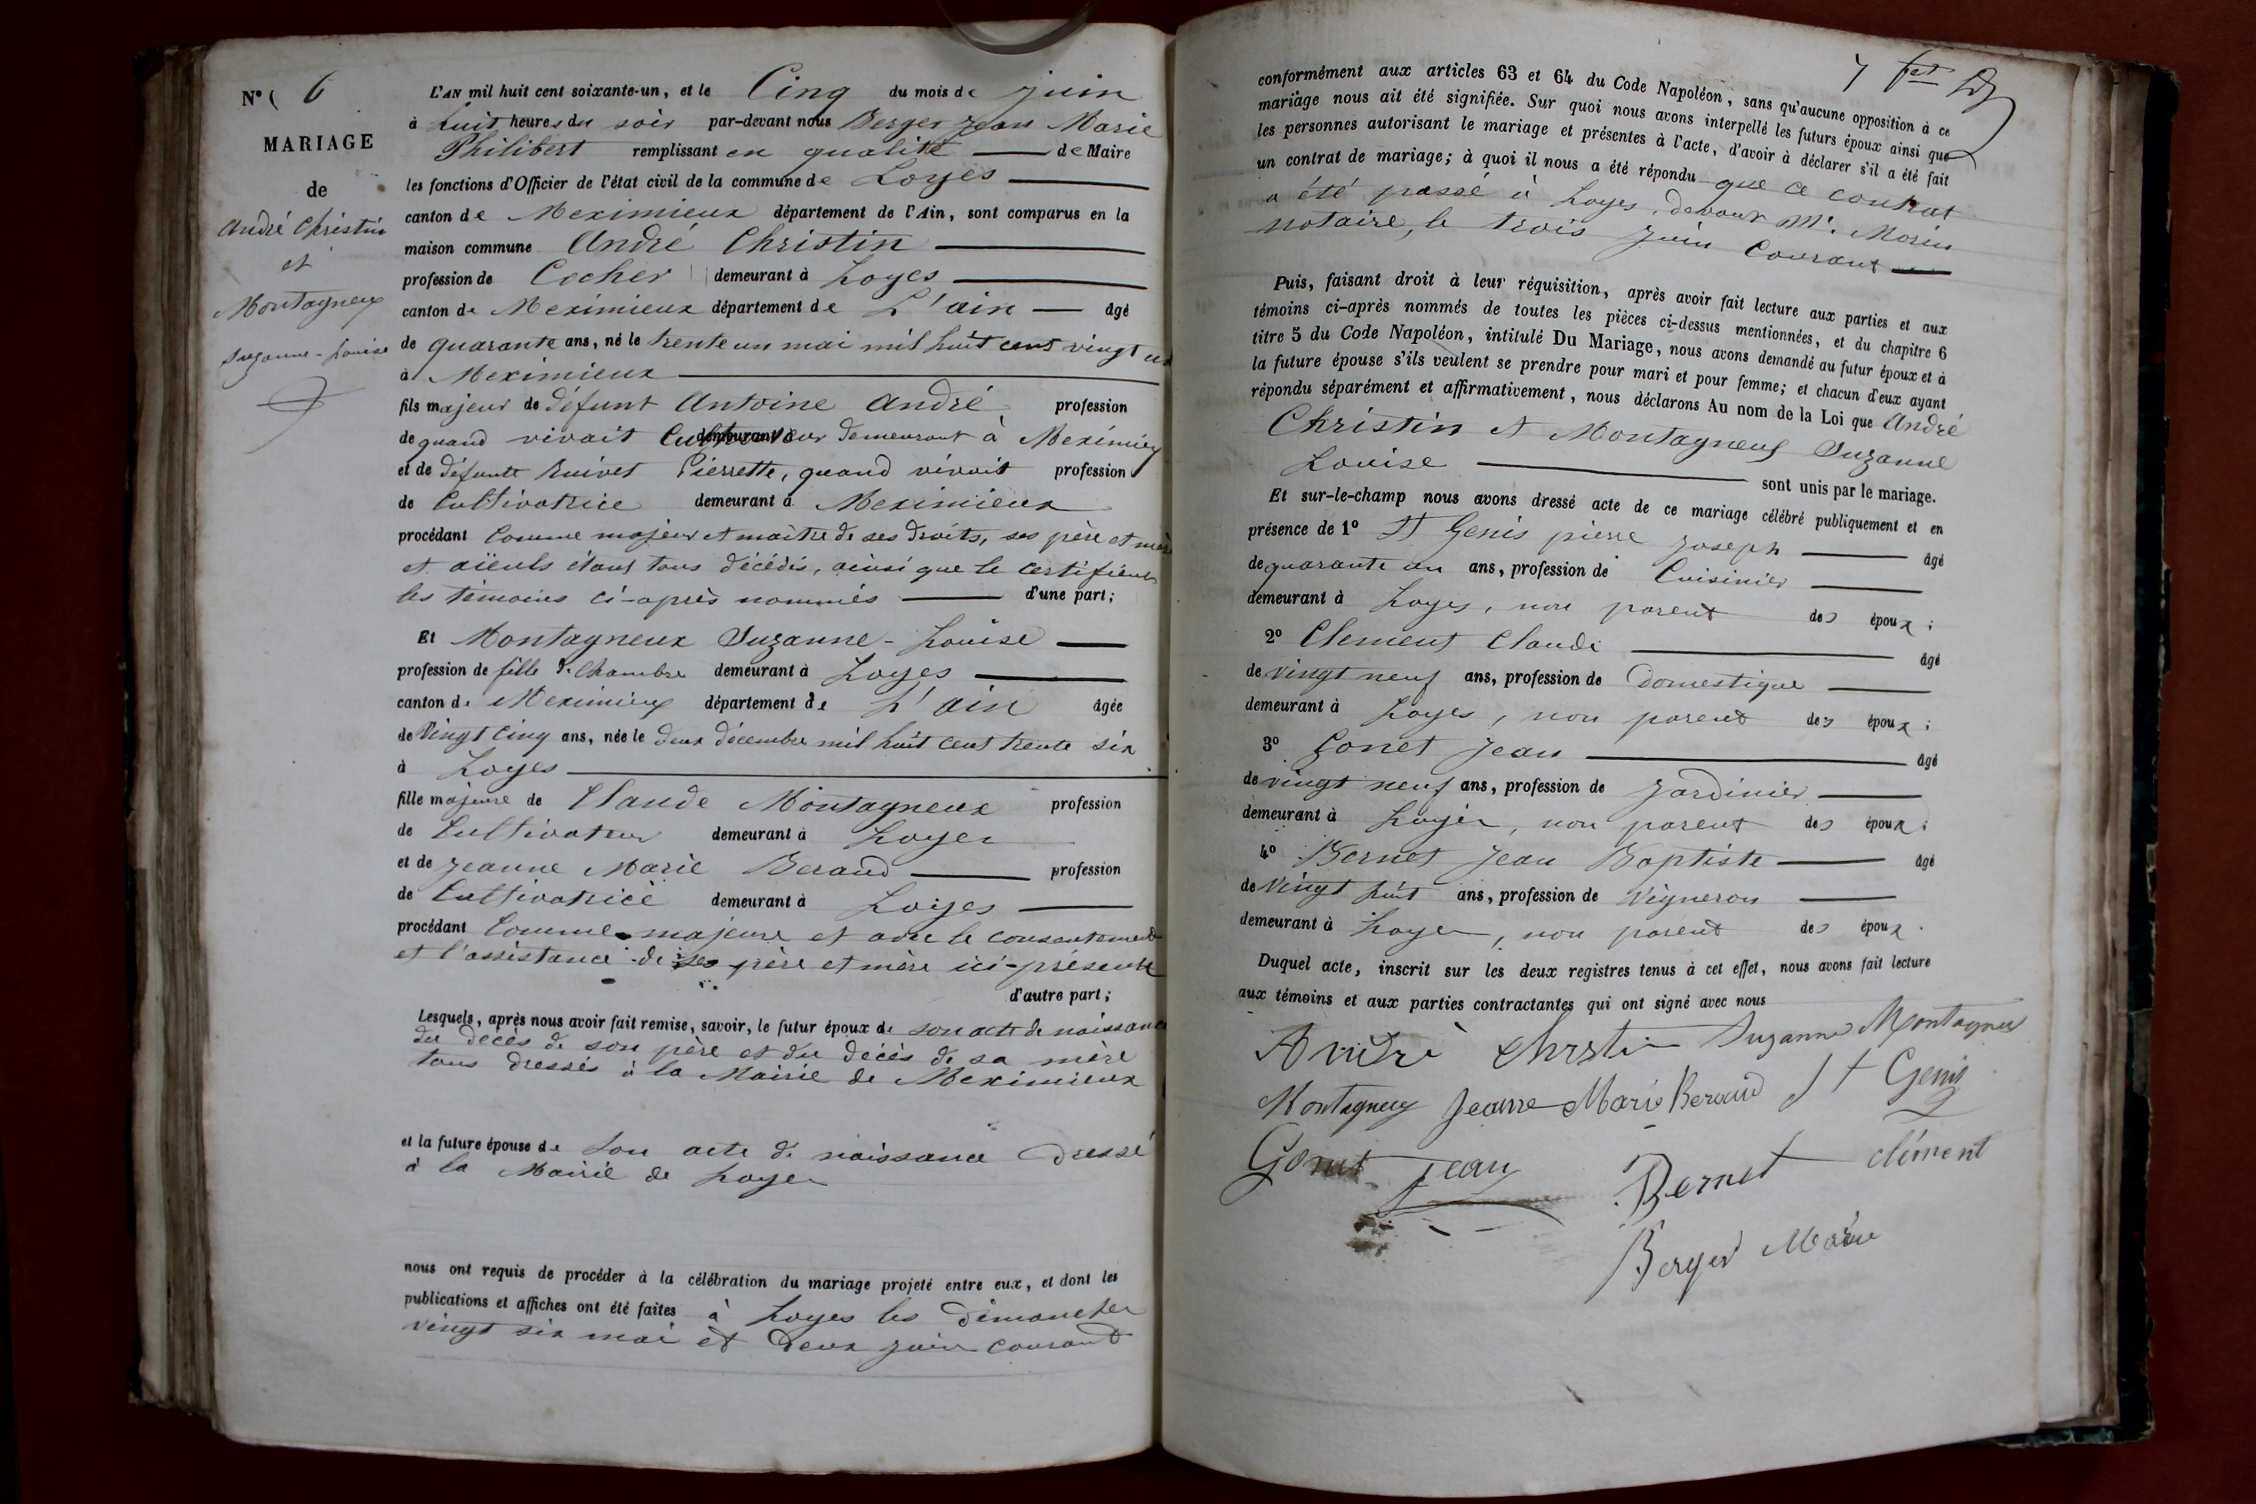 N° 6
MARIAGE
de
André Christin
et
Montagneux
Suzanne-Louise
L'AN mil huit cent soixante-un, et le Cinq du mois de juin
à huit heures du soir par-devant nous Berger Jean Marie
Philibert remplissant en qualité de Maire
les fonctions d'Officier de l'état civil de la commune de Loyes
canton de Meximieux département de l'Ain, sont comparus en la
maison commune André Christin
profession de Cocher demeurant à Loyes
canton de Meximieux département de L'ain âgé
de quarante ans, né le trente un mai mil huit cent vingt un
à Meximieux
fils majeur de défunt Antoine André profession
de quand vivait Cultivateur demeurant à Meximieux
et de défunte Ruivet Pierrette, quand vivait profession
de Cultivatrice demeurant à Meximieux
procédant Comme majeur et maître de ses droits, ses père et mère
et aïeuls étant tous décédés, ainsi que le certifient
les témoins ci-après nommés d'une part;
Et Montagneux Suzanne-Louise
profession de fille de Chambre demeurant à Loyes
canton de Meximieux département de L'ain âgée
de Vingt cinq ans, née le deux décembre mil huit cent trente six
à Loyes
fille majeure de Claude Montagneux profession
de Cultivateur demeurant à Loyes
et de Jeanne Marie Beraud profession
de Cultivatrice demeurant à Loyes
procédant Comme majeure et avec le consentement
et l'assistance de ses père et mère ici-présents
d'autre part;
Lesquels, après nous avoir fait remise, savoir, le futur époux de son acte de naissance
du décès de son père et du décès de sa mère
tous dressés à la Mairie de Meximieux
et la future épouse de son acte de naissance dressé
à la Mairie de Loyes
nous ont requis de procéder à la célébration du mariage projeté entre eux, et dont les
publications et affiches ont été faites à Loyes les dimanches
vingt six mai et deux juin courant
7
conformément aux articles 63 et 64 du Code Napoléon, sans qu'aucune opposition à ce
mariage nous ait été signifiée. Sur quoi nous avons interpellé les futurs époux ainsi que
les personnes autorisant le mariage et présentes à l'acte, d'avoir à déclarer s'il a été fait
un contrat de mariage; à quoi il nous a été répondu que ce contrat
a été passé à Loyes, devant Me. Morin
notaire, le trois juin courant
Puis, faisant droit à leur réquisition, après avoir fait lecture aux parties et aux
témoins ci-après nommés de toutes les pièces ci-dessus mentionnées, et du chapitre 6
titre 5 du Code Napoléon, intitulé Du Mariage, nous avons demandé au futur époux et à
la future épouse s'ils veulent se prendre pour mari et pour femme; et chacun d'eux ayant
répondu séparément et affirmativement, nous déclarons Au nom de la Loi que André
Christin et Montagneux Suzanne
Louise sont unis par le mariage.
Et sur-le-champ nous avons dressé acte de ce mariage célébré publiquement et en
présence de 1° St Genis pierre Joseph âgé
de quarante un ans, profession de Cuisinier
demeurant à Loyes, non parent des époux;
2° Clement Claude âgé
de vingt neuf ans, profession de Domestique
demeurant à Loyes, non parent des époux;
3° Gonet Jean âgé
de vingt neuf ans, profession de Jardinier
demeurant à Loyes, non parent des époux;
4° Bernet Jean Baptiste âgé
de Vingt huit ans, profession de Vigneron
demeurant à Loyes, non parent des époux.
Duquel acte, inscrit sur les deux registres tenus à cet effet, nous avons fait lecture
aux témoins et aux parties contractantes qui ont signé avec nous
André Chrstin Suzanne Montagneux
Montagneux Jeanne Marie Beraud St Genis
Gonet Jean Bernet clément
Berger Maire